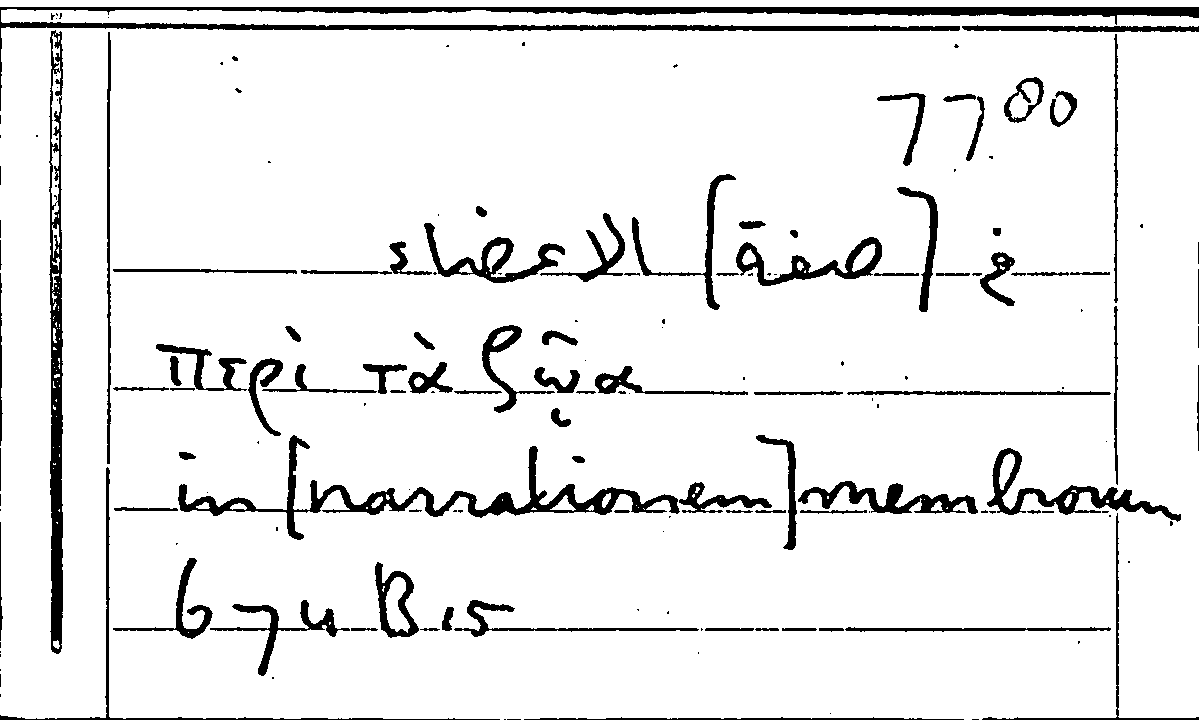 77 80
في [صفة] الاعضاء
περὶ τὰ ζῷα
in [narrationem] membrorum
674 B 15